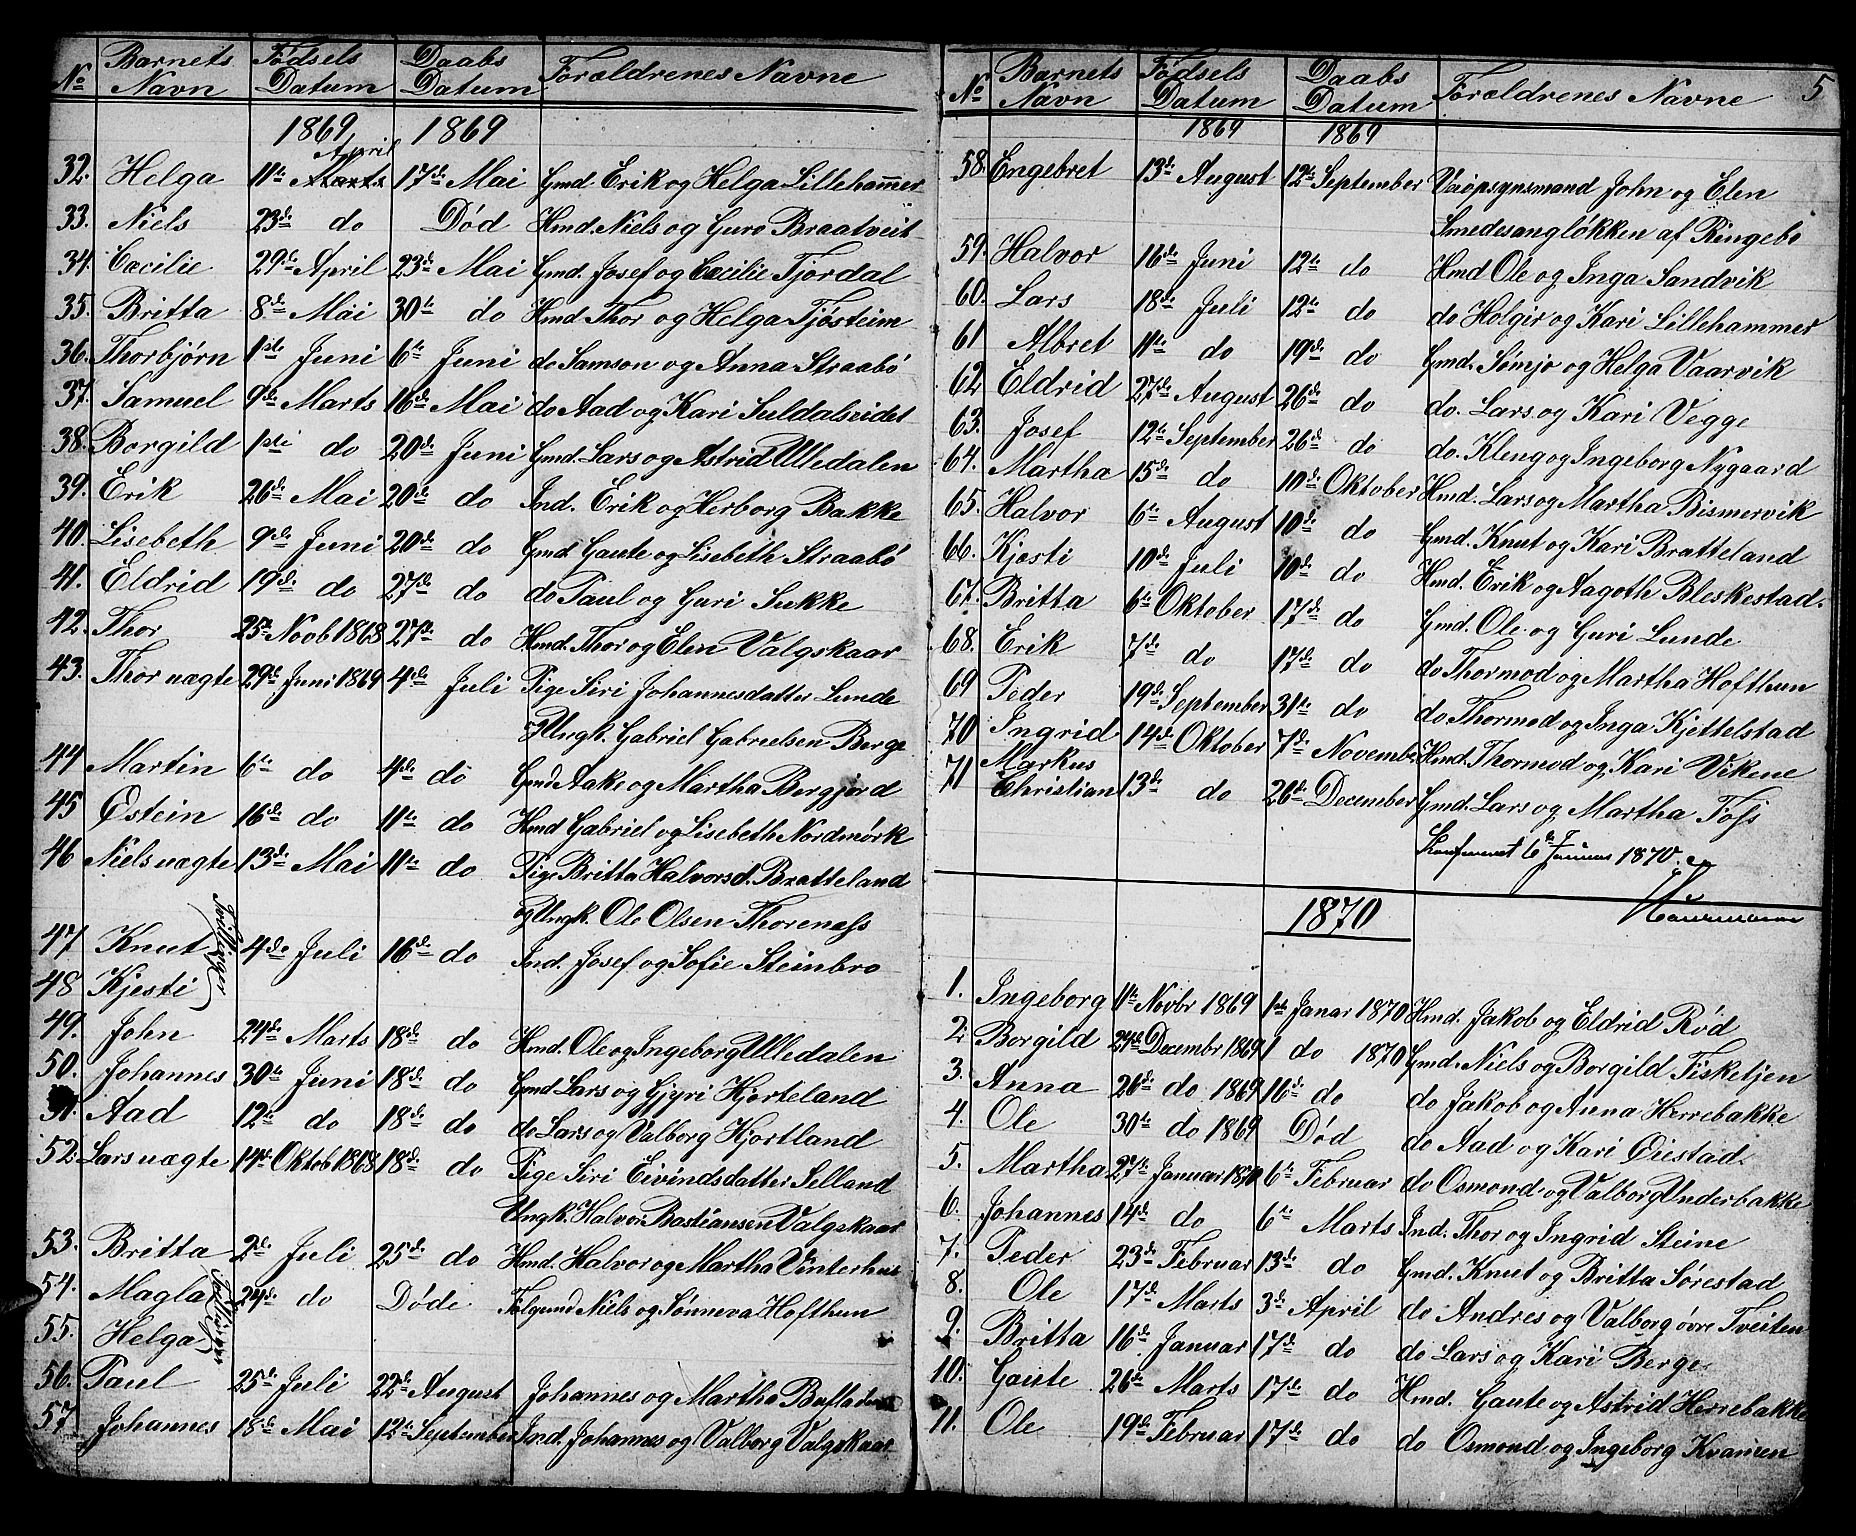 No Barnets Navn Fødsels Datum Daabs Datum Forældrenes Navne
1869 1869
April
32. Helga 11te Marts 17de Mai Gmd. Erik og Helga Lillehammer
33. Niels 23de do Død Hmd. Niels og Guro Braatveit
34. Cæcilie 29de April 23de Mai Gmd. Josef og Cæcilie Fjordal
35. Britta 8de Mai 30te do Hmd. Thor og Helga Tjøsteim
36. Thorbjørn 1ste Juni 6te Juni do Samson og Anna Straabø
37. Samuel 9de Marts 16de Mai do Aad og Kari Suldalseidet
38. Borgild 1ste do 20de Juni Gmd. Lars og Astrid Ulledalen
39. Erik 26de Mai 20de do Ind. Erik og Herborg Bakke
40. Lisebeth 9de Juni 20de do Gmd Gaute og Lisebeth Straabø
41. Eldrid 19de do 27de do do Paul og Guri Sukke
42. Thor 25de Novb 1868 27de do Hmd. Thor og Elen Valgskaar
43. Thor uægte 29de Juni 1869 4de Juli Pige Siri Johannesdatter Lunde
og Ungk. Gabriel Gabrielsen Berge
44 Martin 6te do 4de do Gmd Aake og Martha Bergjord
45 Østein 16de do 11te do Hmd Gabriel og Lisebeth Nordmørk
46 Niels uægte 13de Mai 11te do Pige Britta Halvorsd. Bratteland
og Ungk. Ole Olsen Thorenass
47 Knut Tvillinger 4de Juli 16de do Ind. Josef og Sofie Steinbro
48 Kjesti
49. John 24de Marts 18de do Hmd. Ole og Ingeborg Ulledalen
50. Johannes 30te Juni 18de do Gmd Lars og Gjyri Hjorteland
51. Aad 12te do 18de do do Lars og Valborg Hjortland
52. Lars uægte 14de Oktob 1868 18de do Pige Siri Eivindsdatter Selland
Ungk. Halvor Bastiansen Valgskaar
53. Britta 2de Juli 25de do Hmd. Halvor og Martha Vinterhus
54. Magla Tvillinger 24de do Døde Følgemd Niels og Sønneva Hofthun
55. Helga
56. Paul 25de Juli 22de August Johannes og Martha
57 Johannes 18de Mai 12te September Ind. Johannes og Valborg Valgskaar
5
No Barnets Navn Fødsels Datum Daabs Datum Forældrenes Navne
1869 1869
58. Engebret 13de August 12te September Veiopsynsmand John og Elen
Smedesangløkken af Ringebo
59. Halvor 16de Juni 12te do Hmd Ole og Inga Sandvik
60. Lars 18de Juli 12te do do Holgir og Kari Lillehammer
61 Albret 11te do 19de do Gmd. Sømjo og Helga Vaarvik
62 Eldrid 27de August 26de do do. Lars og Kari Vegge
63. Josef 12te September 26de do do. Kleng og Ingeborg Nygaard
64. Martha 15de do 10de Oktober Hmd. Lars og Martha Bismervik
65. Halvor 6te August 10de do Gmd. Knut og Kari Bratteland
66. Kjesti 10de Juli 10de do Hmd. Erik og Aagoth Bleskestad.
67. Britta 6te Oktober 17de do Gmd. Ole og Guri Lunde
68. Erik 7de do 17de do do Thormod og Martha Hofthun
69 Peder 19de September 31te do do Thormod og Inga Kjettelstad
70 Ingrid 14de Oktober 7de November Hmd. Thormod og Kari Vikene
71 Markus
Christian 13de do 26de December Gmd. Lars og Martha Foss
6te Januar 1870.
1870
1. Ingeborg 11te Novbr 1869 1ste Janar 1870 Hmd. Jakob og Eldrid Rød
2. Borgild 24de Decembr 1869 1 do 1870 Gmd. Niels og Borgild Fisketjen
3. Anna 26de do 1869 16de do do Jakob og Anna Herrebakke
4. Ole 30te do 1869 Død do Aad og Kari Øiestad.
5. Martha 27de Januar 1870 6te Februar do Osmond og Valborg Underbakke
6. Johannes 14de do 6te Marts Ind. Thor og Ingrid Steine
7. Peder 23de Februar 13de do Gmd. Knut og Britta Sørestad
8. Ole 17de Marts 3de April do Andres og Valborg øvre Tveiten
9. Britta 16de Januar 17de do do Lars og Kari Berge
10. Gaute 26de Marts 17de do Hmd. Gaute og Astrid Herrebakke
11. Ole 19de Februar 17de do do Osmond og Ingeborg Kvamen